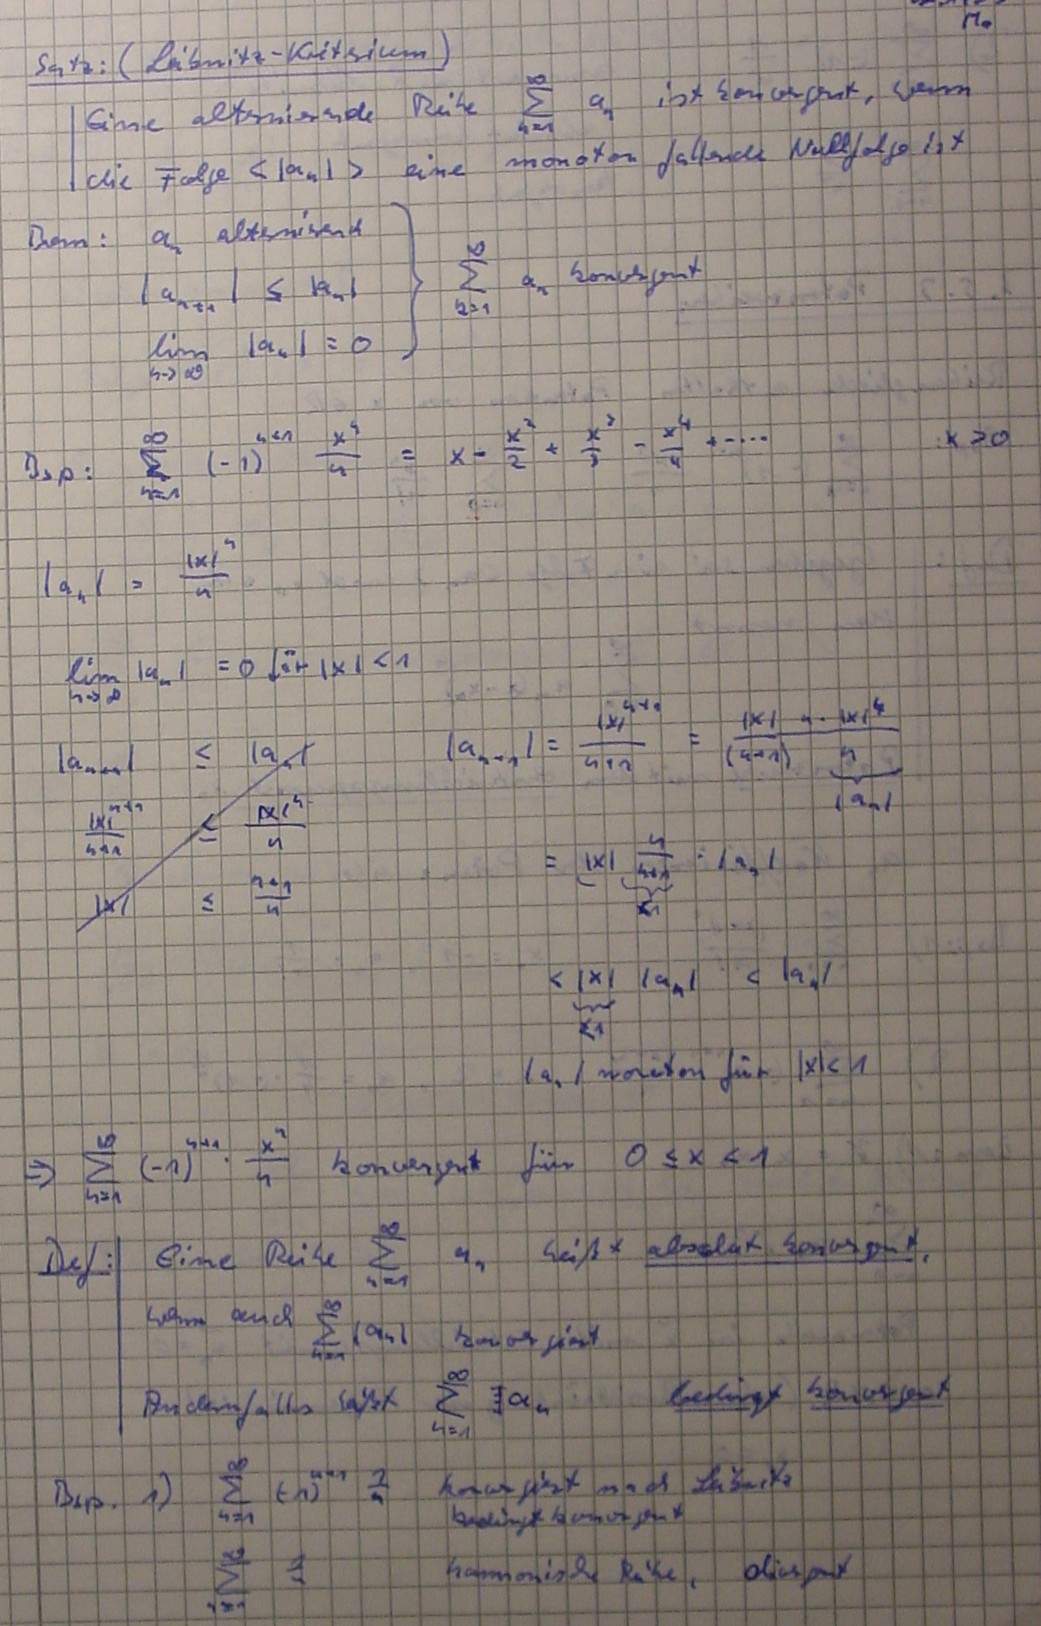 Satz: (Leibnitz-Kriterium)
Eine alternierende Reihe ∑_{n=1}^∞ a_n ist konvergent, wenn
die Folge <|a_n|> eine monoton fallende Nullfolge ist
Bem: a_n alternierend
|a_{n+1}| ≤ |a_n|
lim_{n→∞} |a_n| = 0
} ∑_{n=1}^∞ a_n konvergent
Bsp: ∑_{n=1}^∞ (-1)^{n+1} x^n/n = x - x²/2 + x³/3 - x⁴/4 + - ... x ≥ 0
|a_n| = |x|^n/n
lim_{n→∞} |a_n| = 0 für |x| < 1
|a_{n+1}| ≤ |a_n| |a_{n+1}| = |x|^{n+1}/(n+1) = |x|/(n+1) n · |x|^n/n
|a_n|
|x|^{n+1}/(n+1) ≤ |x|^n/n
= |x| n/(n+1) · |a_n|
<1
|x| ≤ (n+1)/n
< |x| |a_n| < |a_n|
<1
|a_n| monoton für |x| < 1
⇒ ∑_{n=1}^∞ (-1)^{n+1} · x^n/n konvergent für 0 ≤ x < 1
Def: Eine Reihe ∑_{n=1}^∞ a_n heißt absolut konvergent,
wenn auch ∑_{n=1}^∞ |a_n| konvergiert
Andernfalls heißt ∑_{n=1}^∞ a_n bedingt konvergent
Bsp. 1) ∑_{n=1}^∞ (-1)^{n+1} 1/n konvergiert nach Leibnitz
bedingt konvergent
∑_{n=1}^∞ 1/n harmonische Reihe, divergent